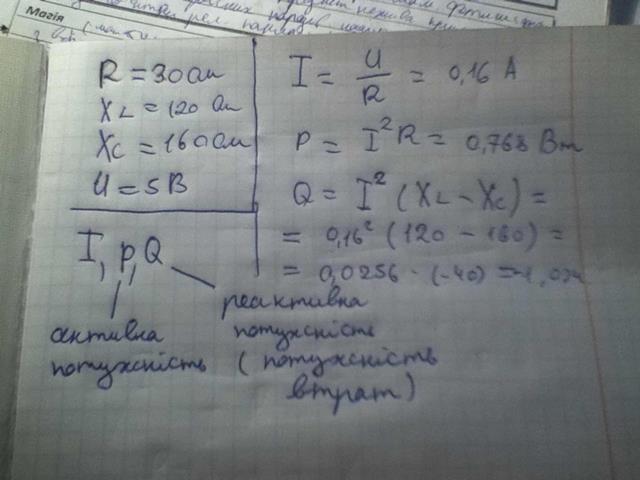 Магія
R = 30 Ом
XL = 120 Ом
XC = 160 Ом
U = 5 В
I, P, Q
активна
потужність
реактивна
потужність
(потужність
втрат)
I = U/R = 0,16 А
P = I²R = 0,768 Вт
Q = I² (XL - XC) =
= 0,16² (120 - 160) =
= 0,0256 · (-40) = -1,024